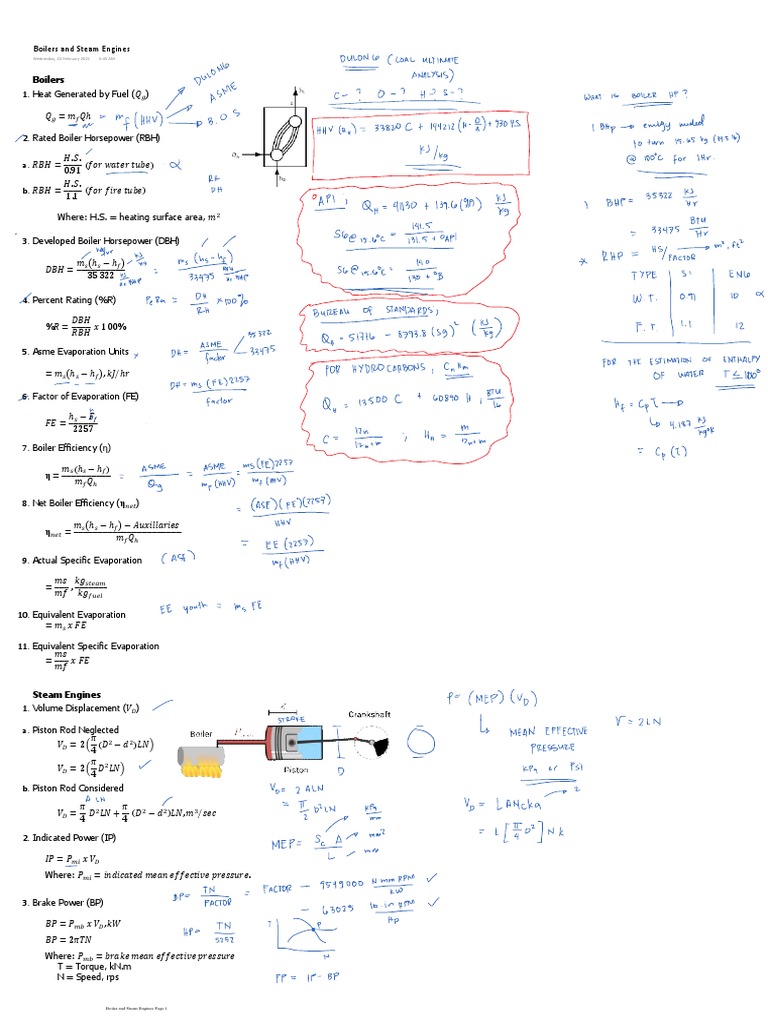 Boilers and Steam Engines
Wednesday, 03 February 2021 6:45 AM
Boilers
1. Heat Generated by Fuel (Qg)
Qg = mfQh = mf (HHV)
DULONG
ASME
B.O.S
2. Rated Boiler Horsepower (RBH)
a. RBH = H.S./0.91 (for water tube) α
b. RBH = H.S./1.1 (for fire tube)
RH
DH
Where: H.S. = heating surface area, m²
3. Developed Boiler Horsepower (DBH)
DBH = ms(hs − hf)/35 322 = ms (hs - hf)/33475
4. Percent Rating (%R) DH/RH x 100%
%R = DBH/RBH x 100%
5. Asme Evaporation Units
DH = ASME/factor
35322
33475
= ms(hs − hf), kJ/hr
DH = ms (FE) 2257/factor
6. Factor of Evaporation (FE)
FE = hs − hf/2257
7. Boiler Efficiency (η)
η = ms(hs − hf)/mfQh = ASME/Qg = ASME/mf(HHV) = ms(FE)2257/mf(HHV)
8. Net Boiler Efficiency (ηnet)
= (ASE)(FE)(2257)/HHV
ηnet = ms(hs − hf) − Auxillaries/mfQh
= EE (2257)/mf(HHV)
9. Actual Specific Evaporation (ASE)
= ms/mf, kgsteam/kgfuel
10. Equivalent Evaporation
= ms x FE
EE = ms FE
11. Equivalent Specific Evaporation
= ms/mf x FE
DULONG (COAL ULTIMATE ANALYSIS)
C - ? O - ? H - ? S - ?
HHV (Qh) = 33820 C + 144212 (H - O/8) + 9304 S
KJ/kg
°API; QH = 41130 + 139.6 (°API) KJ/kg
SG@15.6°C = 141.5/131.5 + °API
SG@15.6°C = 140/130 + °B
BUREAU OF STANDARDS;
Qh = 51716 - 8793.8 (SG)² (KJ/kg)
FOR HYDROCARBONS; CnHm
QH = 13500 C + 60890 H, BTU/lb
C = 12n/12n+m ; Hn = m/12n+m
WHAT IS BOILER HP?
1 BHp → energy needed
to turn 15.65 kg (34.5 lb)
@ 100°C for 1 Hr.
1 BHP = 35322 KJ/Hr
= 33475 BTU/Hr
* RHP = HS/FACTOR → m², ft²
TYPE SI ENG
W.T. 0.91 10 α
F.T. 1.1 12
FOR THE ESTIMATION OF ENTHALPY
OF WATER T ≤ 100°
hf = CpT
4.187 KJ/kg°K
= Cp (T)
Steam Engines
1. Volume Displacement (VD)
a. Piston Rod Neglected
VD = 2(π/4 (D² − d²)LN)
VD = 2(π/4 D²LN)
b. Piston Rod Considered
A LN
VD = π/4 D²LN + π/4 (D² − d²)LN, m³/sec
2. Indicated Power (IP)
IP = Pmi x VD
Where: Pmi = indicated mean effective pressure.
3. Brake Power (BP)
BP = Pmb x VD, kW
BP = 2πTN
Where: Pmb = brake mean effective pressure
T = Torque, kN.m
N = Speed, rps
Boiler
STROKE
Piston
D
Crankshaft
VD = 2 ALN
= π/2 D²LN
MEP = Sc A/L
BP = TN/FACTOR = FACTOR - 9549000 N mm RPM/kW
- 63025 lb-in RPM/Hp
HP = TN/5252
T
P
N
FP = IP - BP
P = (MEP) (VD)
MEAN EFFECTIVE
PRESSURE
KPa or Psi
V = 2LN
VD = LANcka
2
= L [π/4 D²] N k
Boilers and Steam Engines Page 1